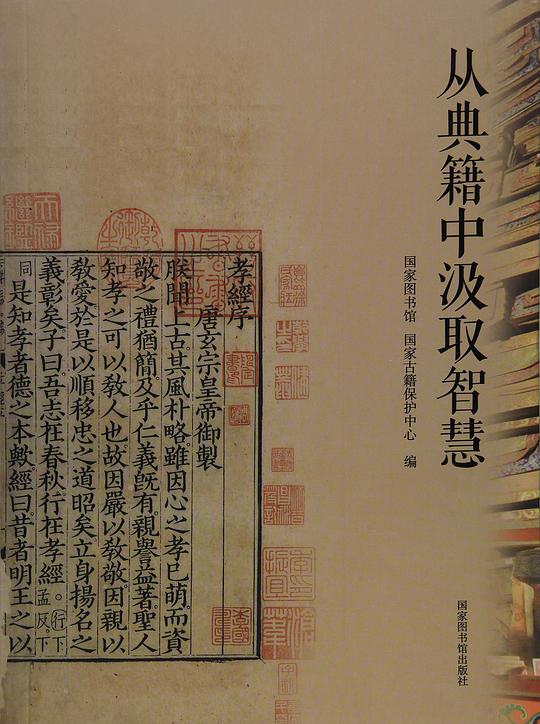 从典籍中汲取智慧
国家图书馆 国家古籍保护中心 编
国家图书馆出版社
孝經序
唐玄宗皇帝御製
朕聞上古其風朴略雖因心之孝已萌而資
敬之禮猶簡及乎仁義旣有親譽益著聖人
知孝之可以敎人也故因嚴以敎敬因親以
敎愛於是以順移忠之道昭矣立身揚名之
義彰矣子曰吾志在春秋行在孝經。行下孟反。下
同是知孝者德之本歟經曰昔者明王之以